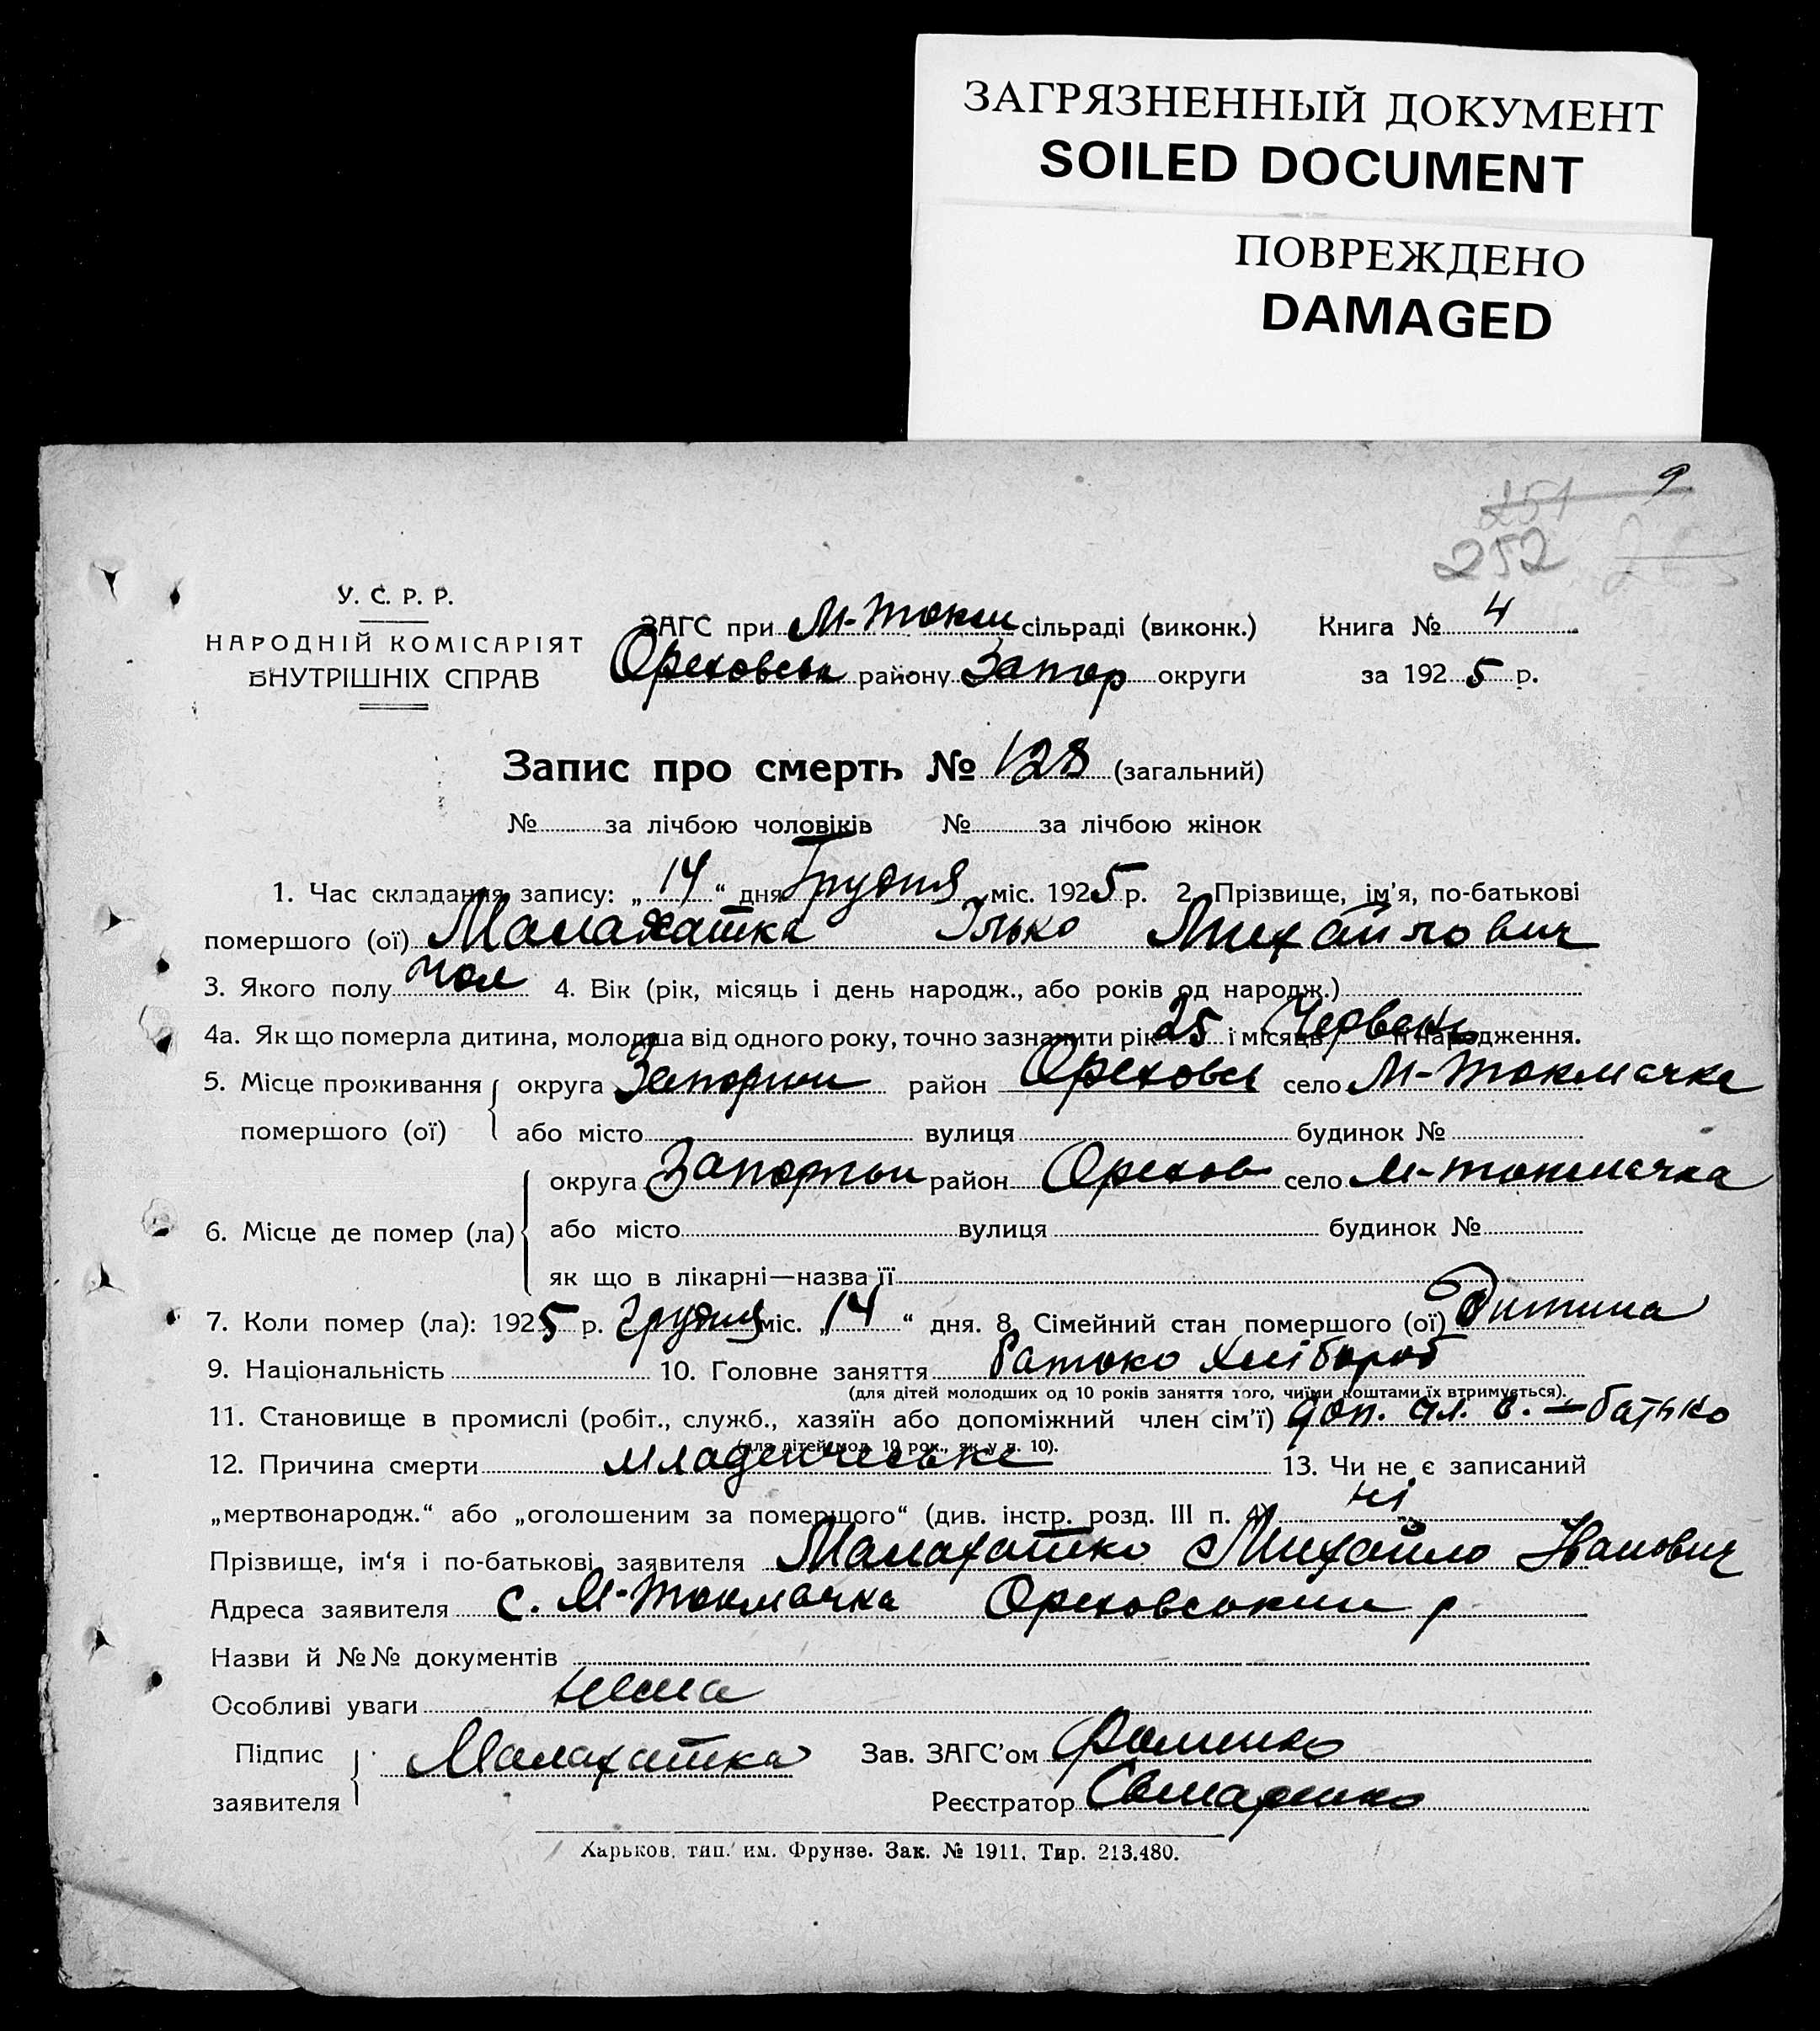 ЗАГРЯЗНЕННЫЙ ДОКУМЕНТ
SOILED DOCUMENT
ПОВРЕЖДЕНО
DAMAGED
9
251
252
У. С. Р. Р.
НАРОДНІЙ КОМІСАРІЯТ
ВНУТРІШНІХ СПРАВ
ЗАГС при М-Токм сільраді (виконк.) Книга № 4
Ореховськ району Запор округи за 1925 р.
Запис про смерть № 128 (загальний)
№ за лічбою чоловіків № за лічбою жінок
1. Час складання запису: „14“ дня Грудня міс. 1925 р. 2. Прізвище, ім’я, по-батькові
помершого (ої) Малахатка Ілько Михайлович
3. Якого полу чол 4. Вік (рік, місяць і день народж., або років од народж.)
4а. Як що померла дитина, молодша від одного року, точно зазначити рік 25 і місяць Червень її народження.
5. Місце проживання округа район Ореховськ село М-Токмачка
помершого (ої) або місто вулиця будинок №
округа район Орехов село М-токмачка
6. Місце де помер (ла) або місто вулиця будинок №
як що в лікарні—назва її
7. Коли помер (ла): 1925 р. Грудня міс. „14“ дня. 8. Сімейний стан помершого (ої) Дитина
9. Національність 10. Головне заняття батько хлібороб
(для дітей молодших од 10 років заняття того, чиїми коштами їх втримується).
11. Становище в промислі (робіт., служб., хазяїн або допоміжний член сім’ї) доп. чл. с. — батько
(для дітей мол. 10 рок., як у п. 10).
12. Причина смерти младенческе 13. Чи не є записаний
„мертвонародж.“ або „оголошеним за помершого“ (див. інстр. розд. III п. 4) ні
Прізвище, ім‘я і по-батькові заявителя Малахатко Михайло Іванович
Адреса заявителя с. М-Токмачка Ореховський р
Назви й №№ документів
Особливі уваги нема
Підпис заявителя Малахатка Зав. ЗАГС’ом Фоменко
Реєстратор
Харьков. тип. им. Фрунзе. Зак. № 1911. Тир. 213.480.